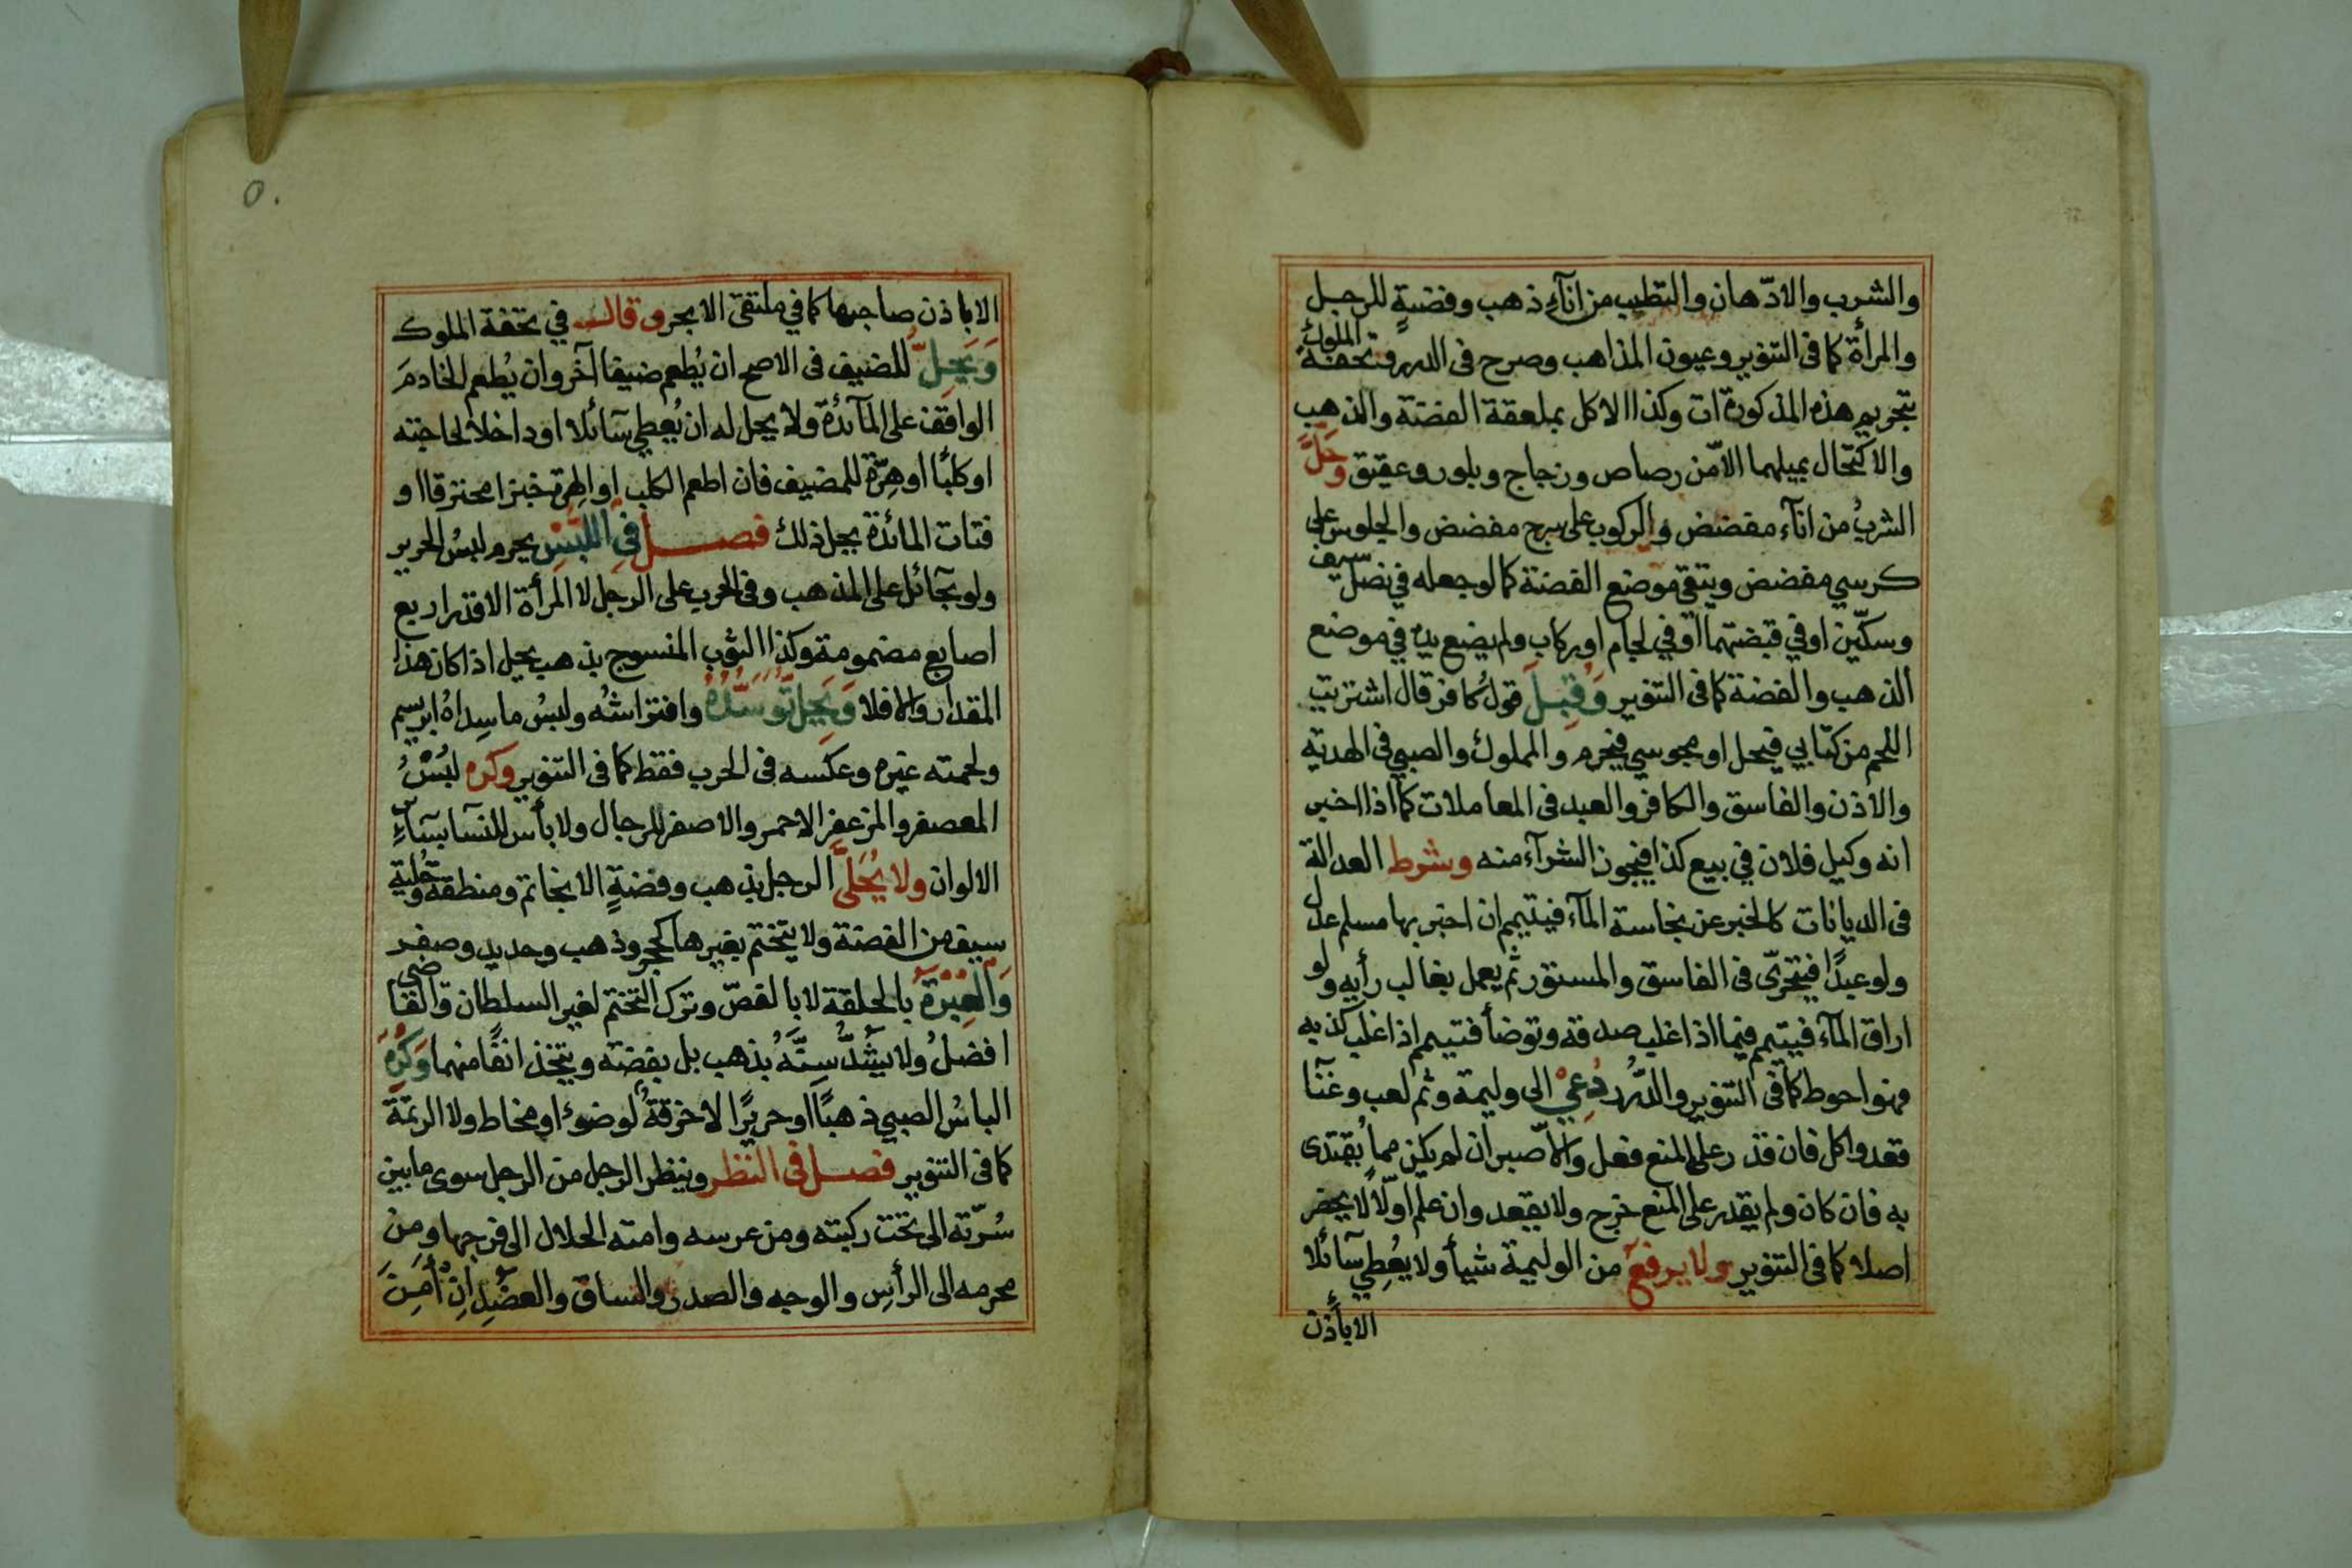 والشرب والادّهان والتطيب من انآء ذهب وفضةٍ للرجل
والمرأة كما فى التنوير وعيون المذاهب وصرح فى الدرر وتحفة الملوك
بتحريم هذه المذكورات وكذا الاكل بملعقة الفضة والذهب
والاكتحال بميلهما الاّ من رصاص وزجاج وبلور وعقيق وَحَلَّ
الشربُ من انآء مفضض والركوب على سرج مفضض والجلوس على
كرسي مفضض ويتقى موضع الفضة كما لو جعله في نصل سيف
وسكّين او في قبضتهما او في لجام او ركاب ولم يضع يده في موضع
الذهب والفضة كما فى التنوير وَقُبِلَ قولُ كافر قال اشتريت
اللحم من كتابي فيحل او مجوسي فيحرم والمملوك والصبي فى الهدية
والاذن والفاسق والكافر والعبد فى المعاملات كما اذا اخبر
انه وكيل فلان في بيع كذا فيجوز الشرآء منه وشرط العدالة
فى الديانات كالخبر عن نجاسة المآء فيتيمم ان اخبر بها مسلم عدل
ولو عبدًا فيتحرّى فى الفاسق والمستور ثم يعمل بغالب رأيه ولو
اراق المآء فيتيمم فيما اذا غلب صدقه وتوضأ فتيمم اذا غلب كذبه
فهو احوط كما فى التنوير والدُّرر دُعِيْ الى وليمة وثم لعب وغنآ
فقعد واكل فان قدر على المنع فعل والاّ صبر ان لم يكن مما يُقتدى
به فان كان ولم يقدر على المنع خرج ولا يقعد وان علم اوّلاً لا يحضر
اصلا كما فى التنوير ولا يرفع من الوليمة شيأ ولا يعُطِي سآئلا
الا بأذن
٥٠
الا باذن صاحبها كما في ملتقى الابحر وقال في تحفة الملوك
وَيَحِلُّ للضيف فى الاصح ان يُطعم ضيفا آخر وان يُطعم الخادمَ
الواقف على المآئدة ولا يحل له ان يُعطي سآئلا او داخلا لحاجته
او كلبًا او هِرّة للمضيف فان اطعم الكلب او الهرة خبزا محترقا او
فتات المائدة يحل ذلك فصل في اللُبْسِ يحرم لبسُ الحرير
ولو بحآئل على المذهب وفى الحرب على الرجل لا المرأة الا قدر اربع
اصابع مضمومة وكذا الثوب المنسوج بذهب يحل اذا كان هذا
المقدار والا فلا وَيَحِلُ تَوَسُّدُهُ وافتراشُه ولبسُ ما سداهُ ابريسم
ولحمته غيره وعكسه فى الحرب فقط كما فى التنوير وكره لُبْسُ
المعصفر والمزعفر الاحمر والاصفر للرجال ولا بأس للنسا بسآئر
الالوان ولا يُحَلَّى الرجل بذهب وفضةٍ الا بخاتم ومنطقة وحُلية
سيف من الفضة ولا يتختم بغيرها كحجر وذهب وحديد وصفر
وَالْعِبْرَةُ بالحلقة لا بالفصّ وترك التختم لغير السلطان والقاضى
افضلُ ولا يَشُدُّ سِنَّهُ بذهب بل بفضة ويتخذ انفًا منهما وَكُرِهَ
الباسُ الصبي ذهبًا او حريرًا لا خرقةٌ لوضوء او مخاط ولا الرتمة
كما فى التنوير فصل فى النظر وينظر الرجل من الرجل سوى ما بين
سُرّته الى تحت ركبته ومن عرسه وامته الحلال الى فرجها ومن
محرمه الى الرأس والوجه والصدر والساق والعضُد اِنْ أَمِنَ